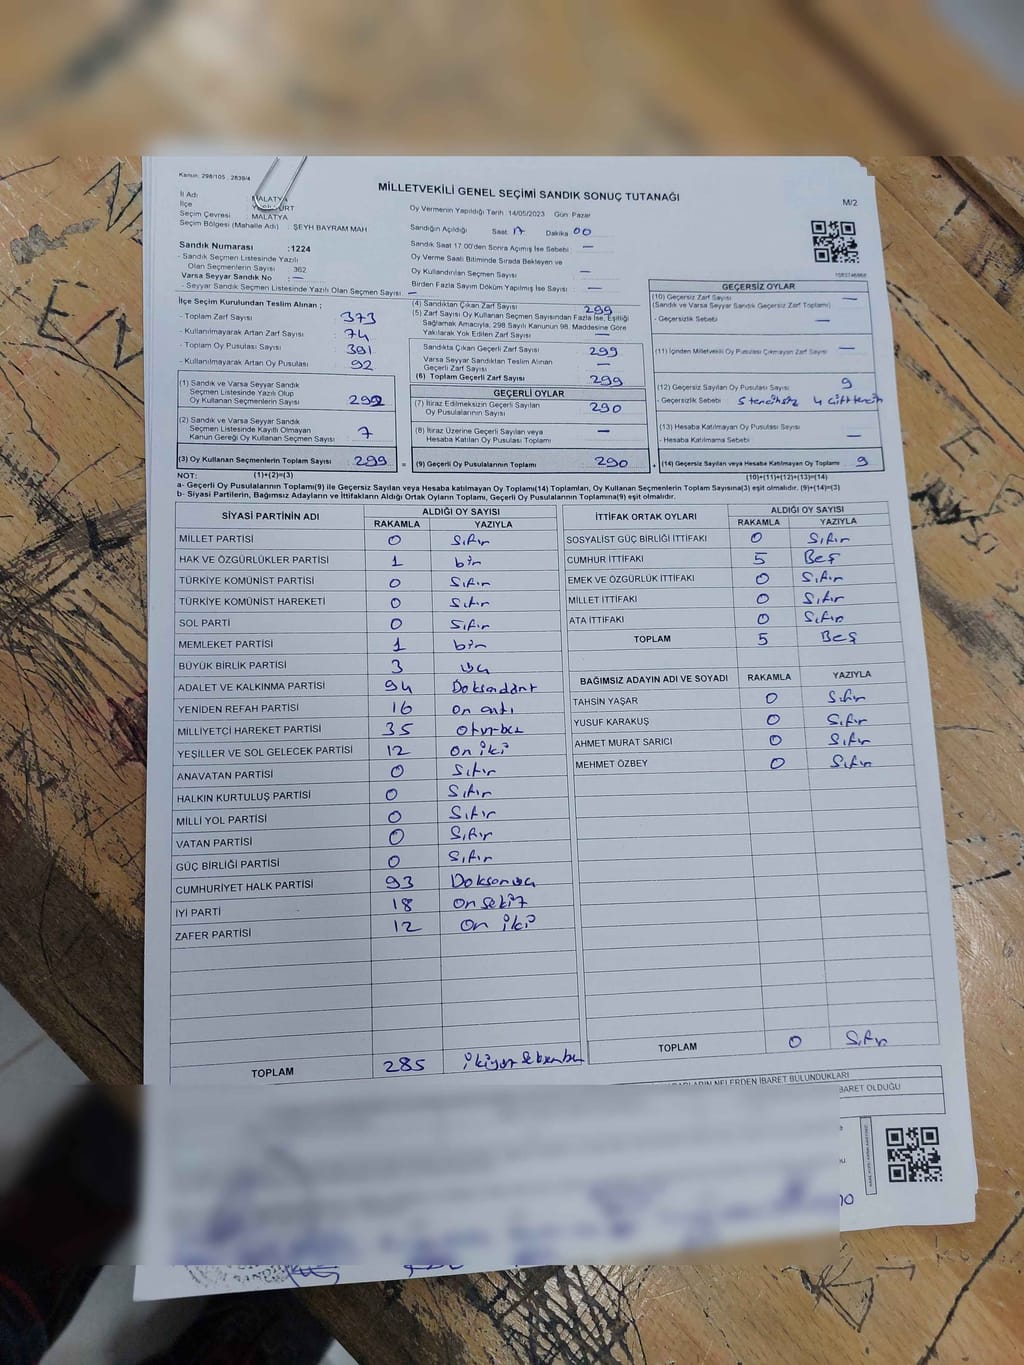 Kanun: 298/105 , 2839/4
MİLLETVEKİLİ GENEL SEÇİMİ SANDIK SONUÇ TUTANAĞI
M/2
İl Adı MALATYA
İlçe
Seçim Çevresi : MALATYA
Seçim Bölgesi (Mahalle Adı) : ŞEYH BAYRAM MAH
Sandık Numarası :1224
- Sandık Seçmen Listesinde Yazılı
Olan Seçmenlerin Sayısı 362
Varsa Seyyar Sandık No : —
- Seyyar Sandık Seçmen Listesinde Yazılı Olan Seçmen Sayısı : —
Oy Vermenin Yapıldığı Tarih :14/05/2023 Gün: Pazar
Sandığın Açıldığı Saat 17 Dakika 00
Sandık Saat 17.00'den Sonra Açılmış İse Sebebi : —
Oy Verme Saati Bitiminde Sırada Bekleyen ve
Oy Kullandırılan Seçmen Sayısı : —
Birden Fazla Sayım Döküm Yapılmış İse Sayısı : —
İlçe Seçim Kurulundan Teslim Alınan ;
- Toplam Zarf Sayısı : 373
- Kullanılmayarak Artan Zarf Sayısı : 74
- Toplam Oy Pusulası Sayısı : 391
- Kullanılmayarak Artan Oy Pusulası : 92
(1) Sandık ve Varsa Seyyar Sandık
Seçmen Listesinde Yazılı Olup
Oy Kullanan Seçmenlerin Sayısı : 292
(2) Sandık ve Varsa Seyyar Sandık
Seçmen Listesinde Kayıtlı Olmayan
Kanun Gereği Oy Kullanan Seçmen Sayısı : 7
(3) Oy Kullanan Seçmenlerin Toplam Sayısı : 299
(1)+(2)=(3)
(4) Sandıktan Çıkan Zarf Sayısı : 299
(5) Zarf Sayısı Oy Kullanan Seçmen Sayısından Fazla İse, Eşitliği
Sağlamak Amacıyla, 298 Sayılı Kanunun 98. Maddesine Göre
Yakılarak Yok Edilen Zarf Sayısı :
Sandıkta Çıkan Geçerli Zarf Sayısı : 299
Varsa Seyyar Sandıktan Teslim Alınan
Geçerli Zarf Sayısı : —
(6) Toplam Geçerli Zarf Sayısı : 299
GEÇERLİ OYLAR
(7) İtiraz Edilmeksizin Geçerli Sayılan
Oy Pusulalarının Sayısı : 290
(8) İtiraz Üzerine Geçerli Sayılan veya
Hesaba Katılan Oy Pusulası Toplamı : —
= (9) Geçerli Oy Pusulalarının Toplamı : 290
GEÇERSİZ OYLAR
(10) Geçersiz Zarf Sayısı : —
(Sandık ve Varsa Seyyar Sandık Geçersiz Zarf Toplamı)
- Geçersizlik Sebebi : —
(11) İçinden Milletvekili Oy Pusulası Çıkmayan Zarf Sayısı : —
(12) Geçersiz Sayılan Oy Pusulası Sayısı : 9
- Geçersizlik Sebebi : 5 tercihsiz 4 çift tercih
(13) Hesaba Katılmayan Oy Pusulası Sayısı :
- Hesaba Katılmama Sebebi : —
+ (14) Geçersiz Sayılan veya Hesaba Katılmayan Oy Toplamı : 9
(10)+(11)+(12)+(13)=(14)
NOT:
a- Geçerli Oy Pusulalarının Toplamı(9) ile Geçersiz Sayılan veya Hesaba katılmayan Oy Toplamı(14) Toplamları, Oy Kullanan Seçmenlerin Toplam Sayısına(3) eşit olmalıdır. (9)+(14)=(3)
b- Siyasi Partilerin, Bağımsız Adayların ve İttifakların Aldığı Ortak Oyların Toplamı, Geçerli Oy Pusulalarının Toplamına(9) eşit olmalıdır.
SİYASİ PARTİNİN ADI ALDIĞI OY SAYISI
RAKAMLA YAZIYLA
MİLLET PARTİSİ 0 Sıfır
HAK VE ÖZGÜRLÜKLER PARTİSİ 1 bir
TÜRKİYE KOMÜNİST PARTİSİ 0 Sıfır
TÜRKİYE KOMÜNİST HAREKETİ 0 Sıfır
SOL PARTİ 0 Sıfır
MEMLEKET PARTİSİ 1 bir
BÜYÜK BİRLİK PARTİSİ 3 üç
ADALET VE KALKINMA PARTİSİ 94 Doksandört
YENİDEN REFAH PARTİSİ 16 On altı
MİLLİYETÇİ HAREKET PARTİSİ 35 otuzbeş
YEŞİLLER VE SOL GELECEK PARTİSİ 12 on iki
ANAVATAN PARTİSİ 0 Sıfır
HALKIN KURTULUŞ PARTİSİ 0 Sıfır
MİLLİ YOL PARTİSİ 0 Sıfır
VATAN PARTİSİ 0 Sıfır
GÜÇ BİRLİĞİ PARTİSİ 0 Sıfır
CUMHURİYET HALK PARTİSİ 93 Doksanüç
İYİ PARTİ 18 On sekiz
ZAFER PARTİSİ 12 On iki
TOPLAM 285 ikiyüz seksenbeş
İTTİFAK ORTAK OYLARI ALDIĞI OY SAYISI
RAKAMLA YAZIYLA
SOSYALİST GÜÇ BİRLİĞİ İTTİFAKI 0 Sıfır
CUMHUR İTTİFAKI 5 Beş
EMEK VE ÖZGÜRLÜK İTTİFAKI 0 Sıfır
MİLLET İTTİFAKI 0 Sıfır
ATA İTTİFAKI 0 Sıfır
TOPLAM 5 Beş
BAĞIMSIZ ADAYIN ADI VE SOYADI RAKAMLA YAZIYLA
TAHSİN YAŞAR 0 Sıfır
YUSUF KARAKUŞ 0 Sıfır
AHMET MURAT SARICI 0 Sıfır
MEHMET ÖZBEY 0 Sıfır
TOPLAM 0 Sıfır
NELERDEN İBARET BULUNDUKLARI
BARET OLDUĞU